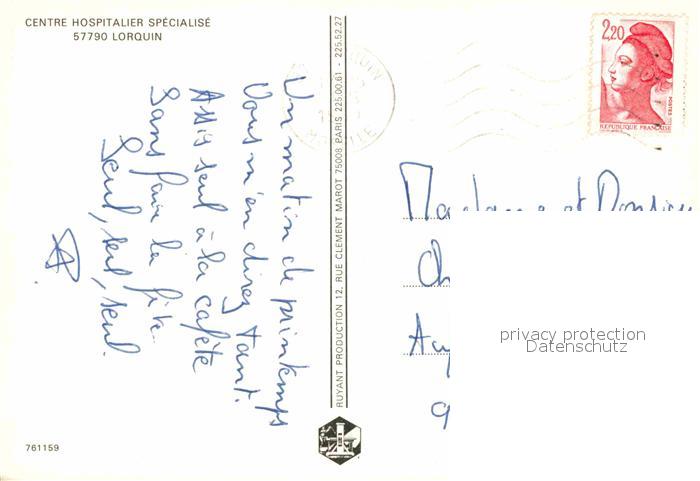 CENTRE HOSPITALIER SPÉCIALISÉ
57790 LORQUIN
Un matin de printemps
Vous m'en direz tant.
Assis seul à la cafète
Sans faire la fête.
Seul, seul, seul.
RUYANT PRODUCTION 12, RUE CLEMENT MAROT 75008 PARIS 225.00.61 - 225.52.27
2,20
POSTES
REPUBLIQUE FRANÇAISE
Madame et
privacy protection
Datenschutz
761159